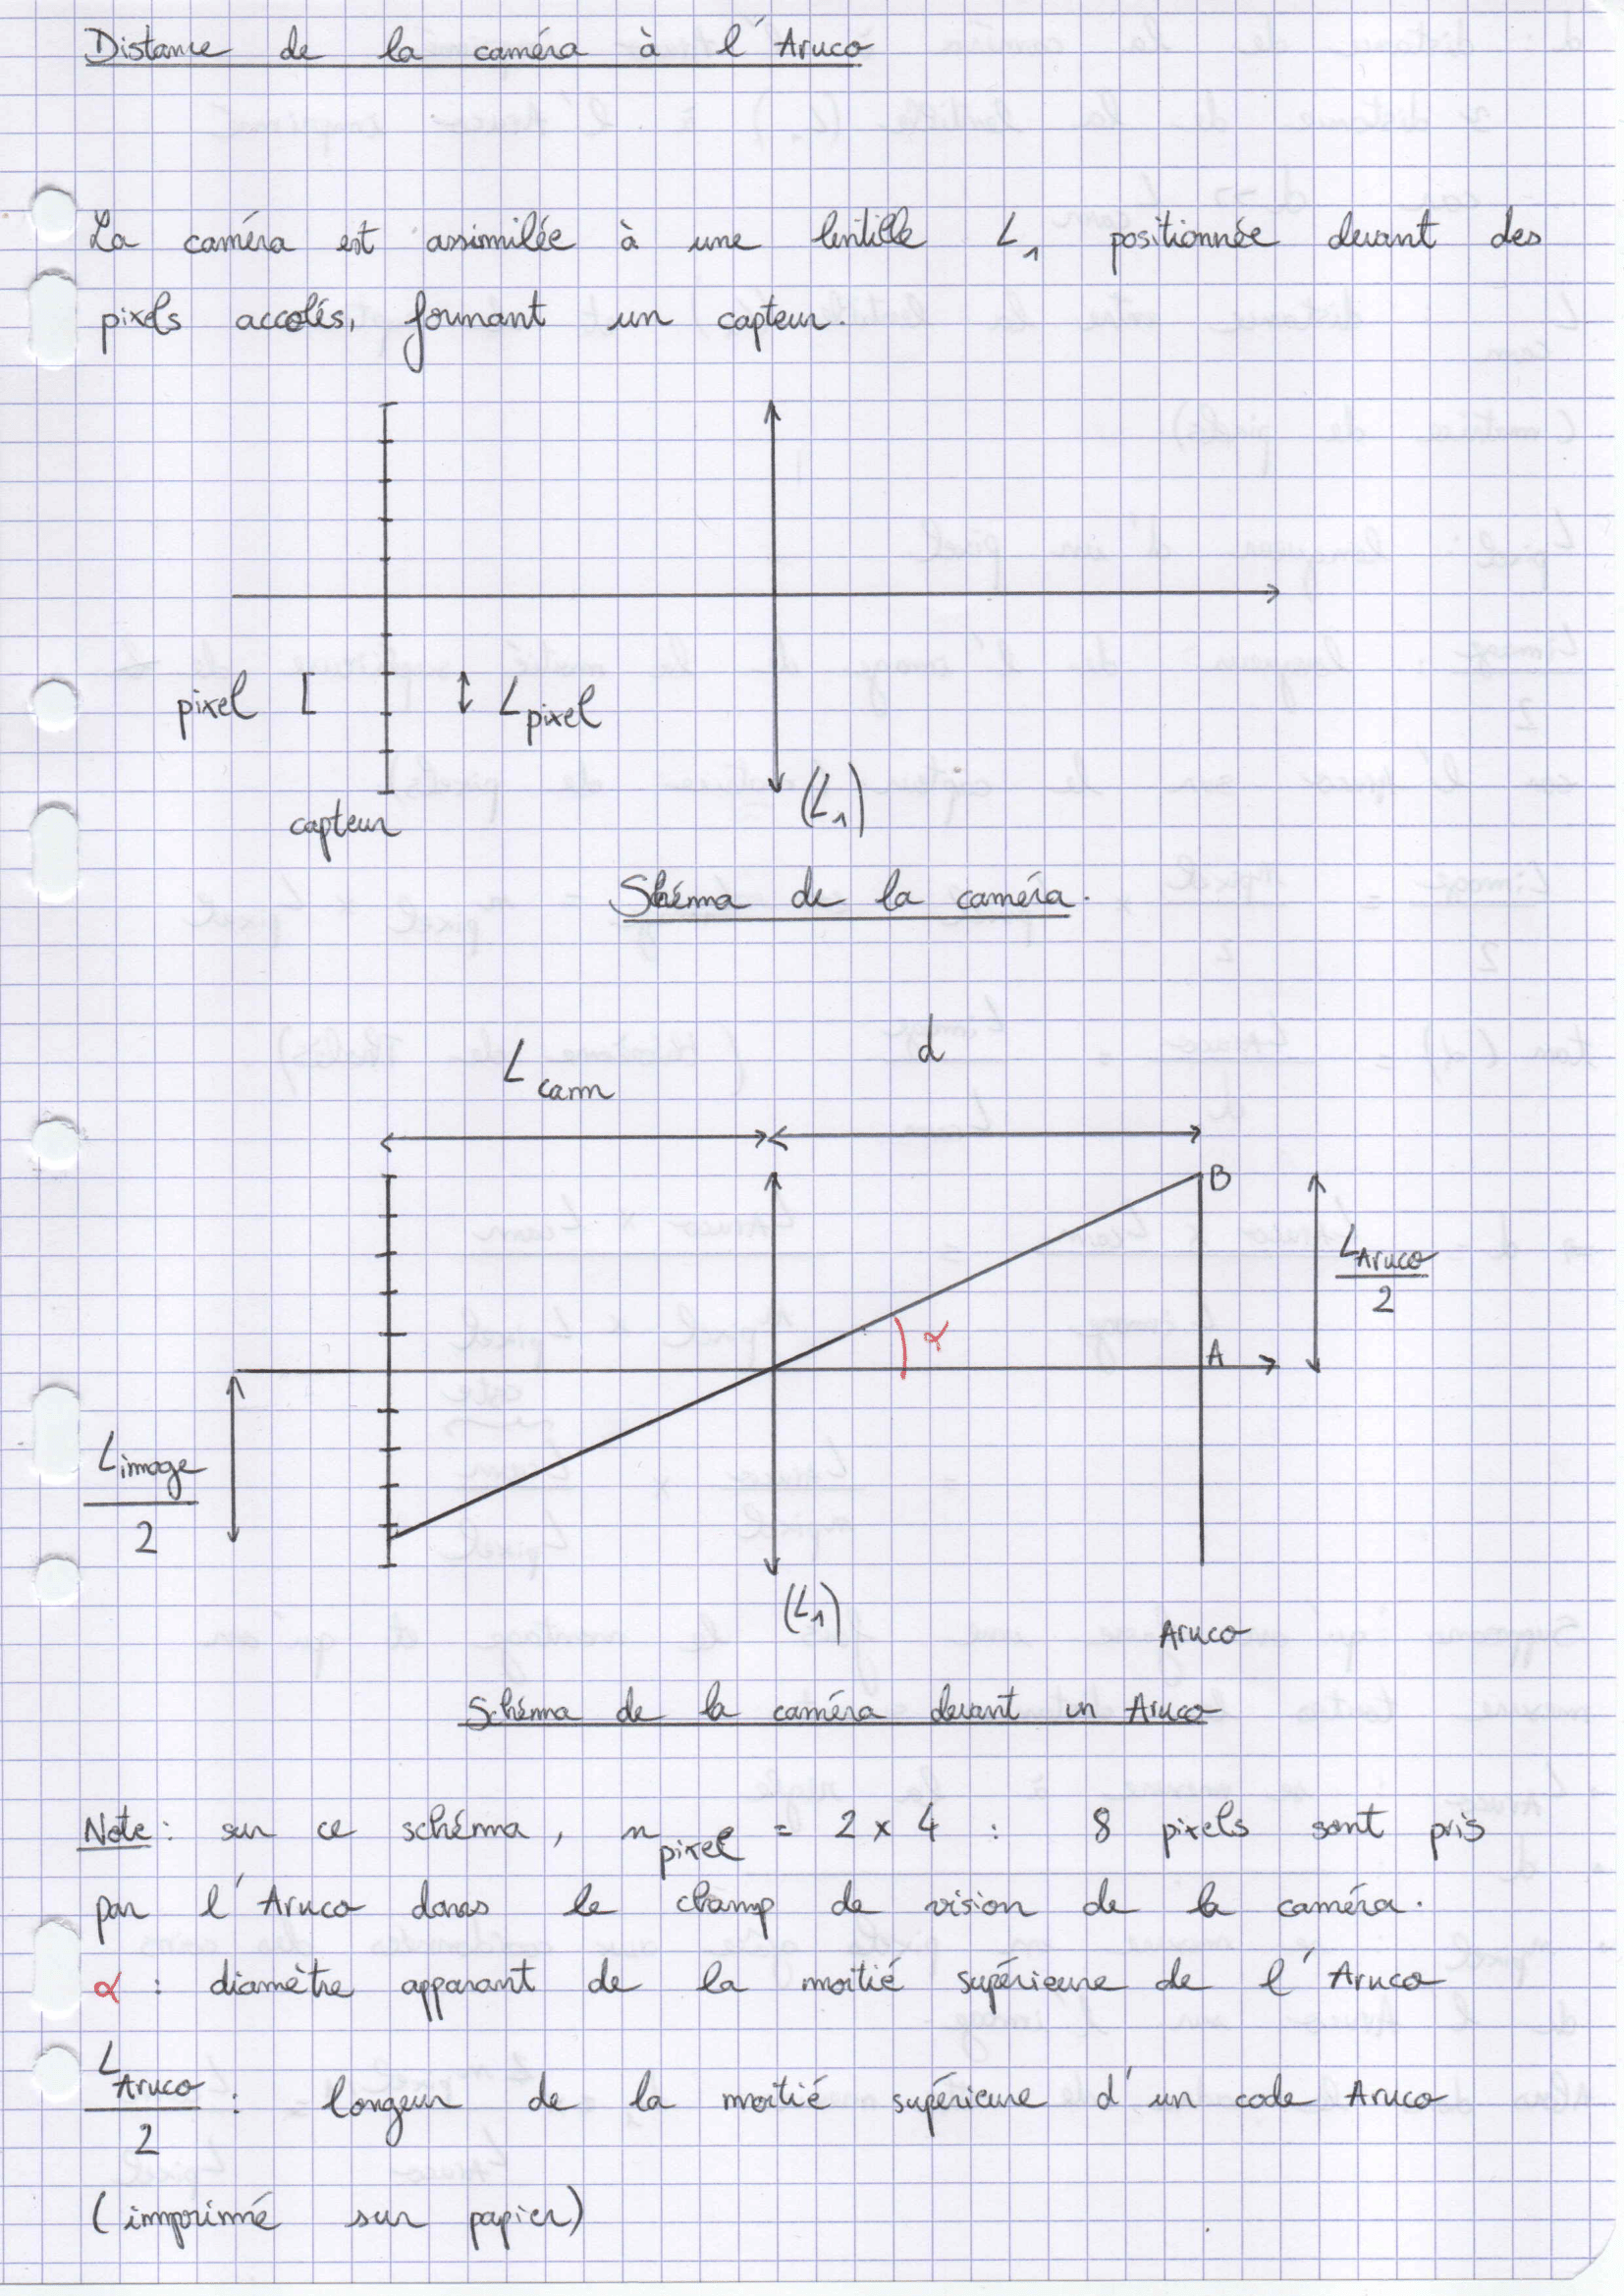 Distance de la caméra à l'Aruco
La caméra est assimilée à une lentille L₁ positionnée devant des
pixels accolés, formant un capteur.
pixel [ L_pixel
(L₁)
capteur
Schéma de la caméra.
L_cam d
B
L_Aruco/2
α
A
L_image/2
(L₁)
Aruco
Schéma de la caméra devant un Aruco
Note : sur ce schéma, n_pixel = 2 x 4 : 8 pixels sont pris
par l'Aruco dans le champ de vision de la caméra.
α : diamètre apparant de la moitié supérieure de l'Aruco
L_Aruco/2 : longeur de la moitié supérieure d'un code Aruco
(imprimé sur papier)